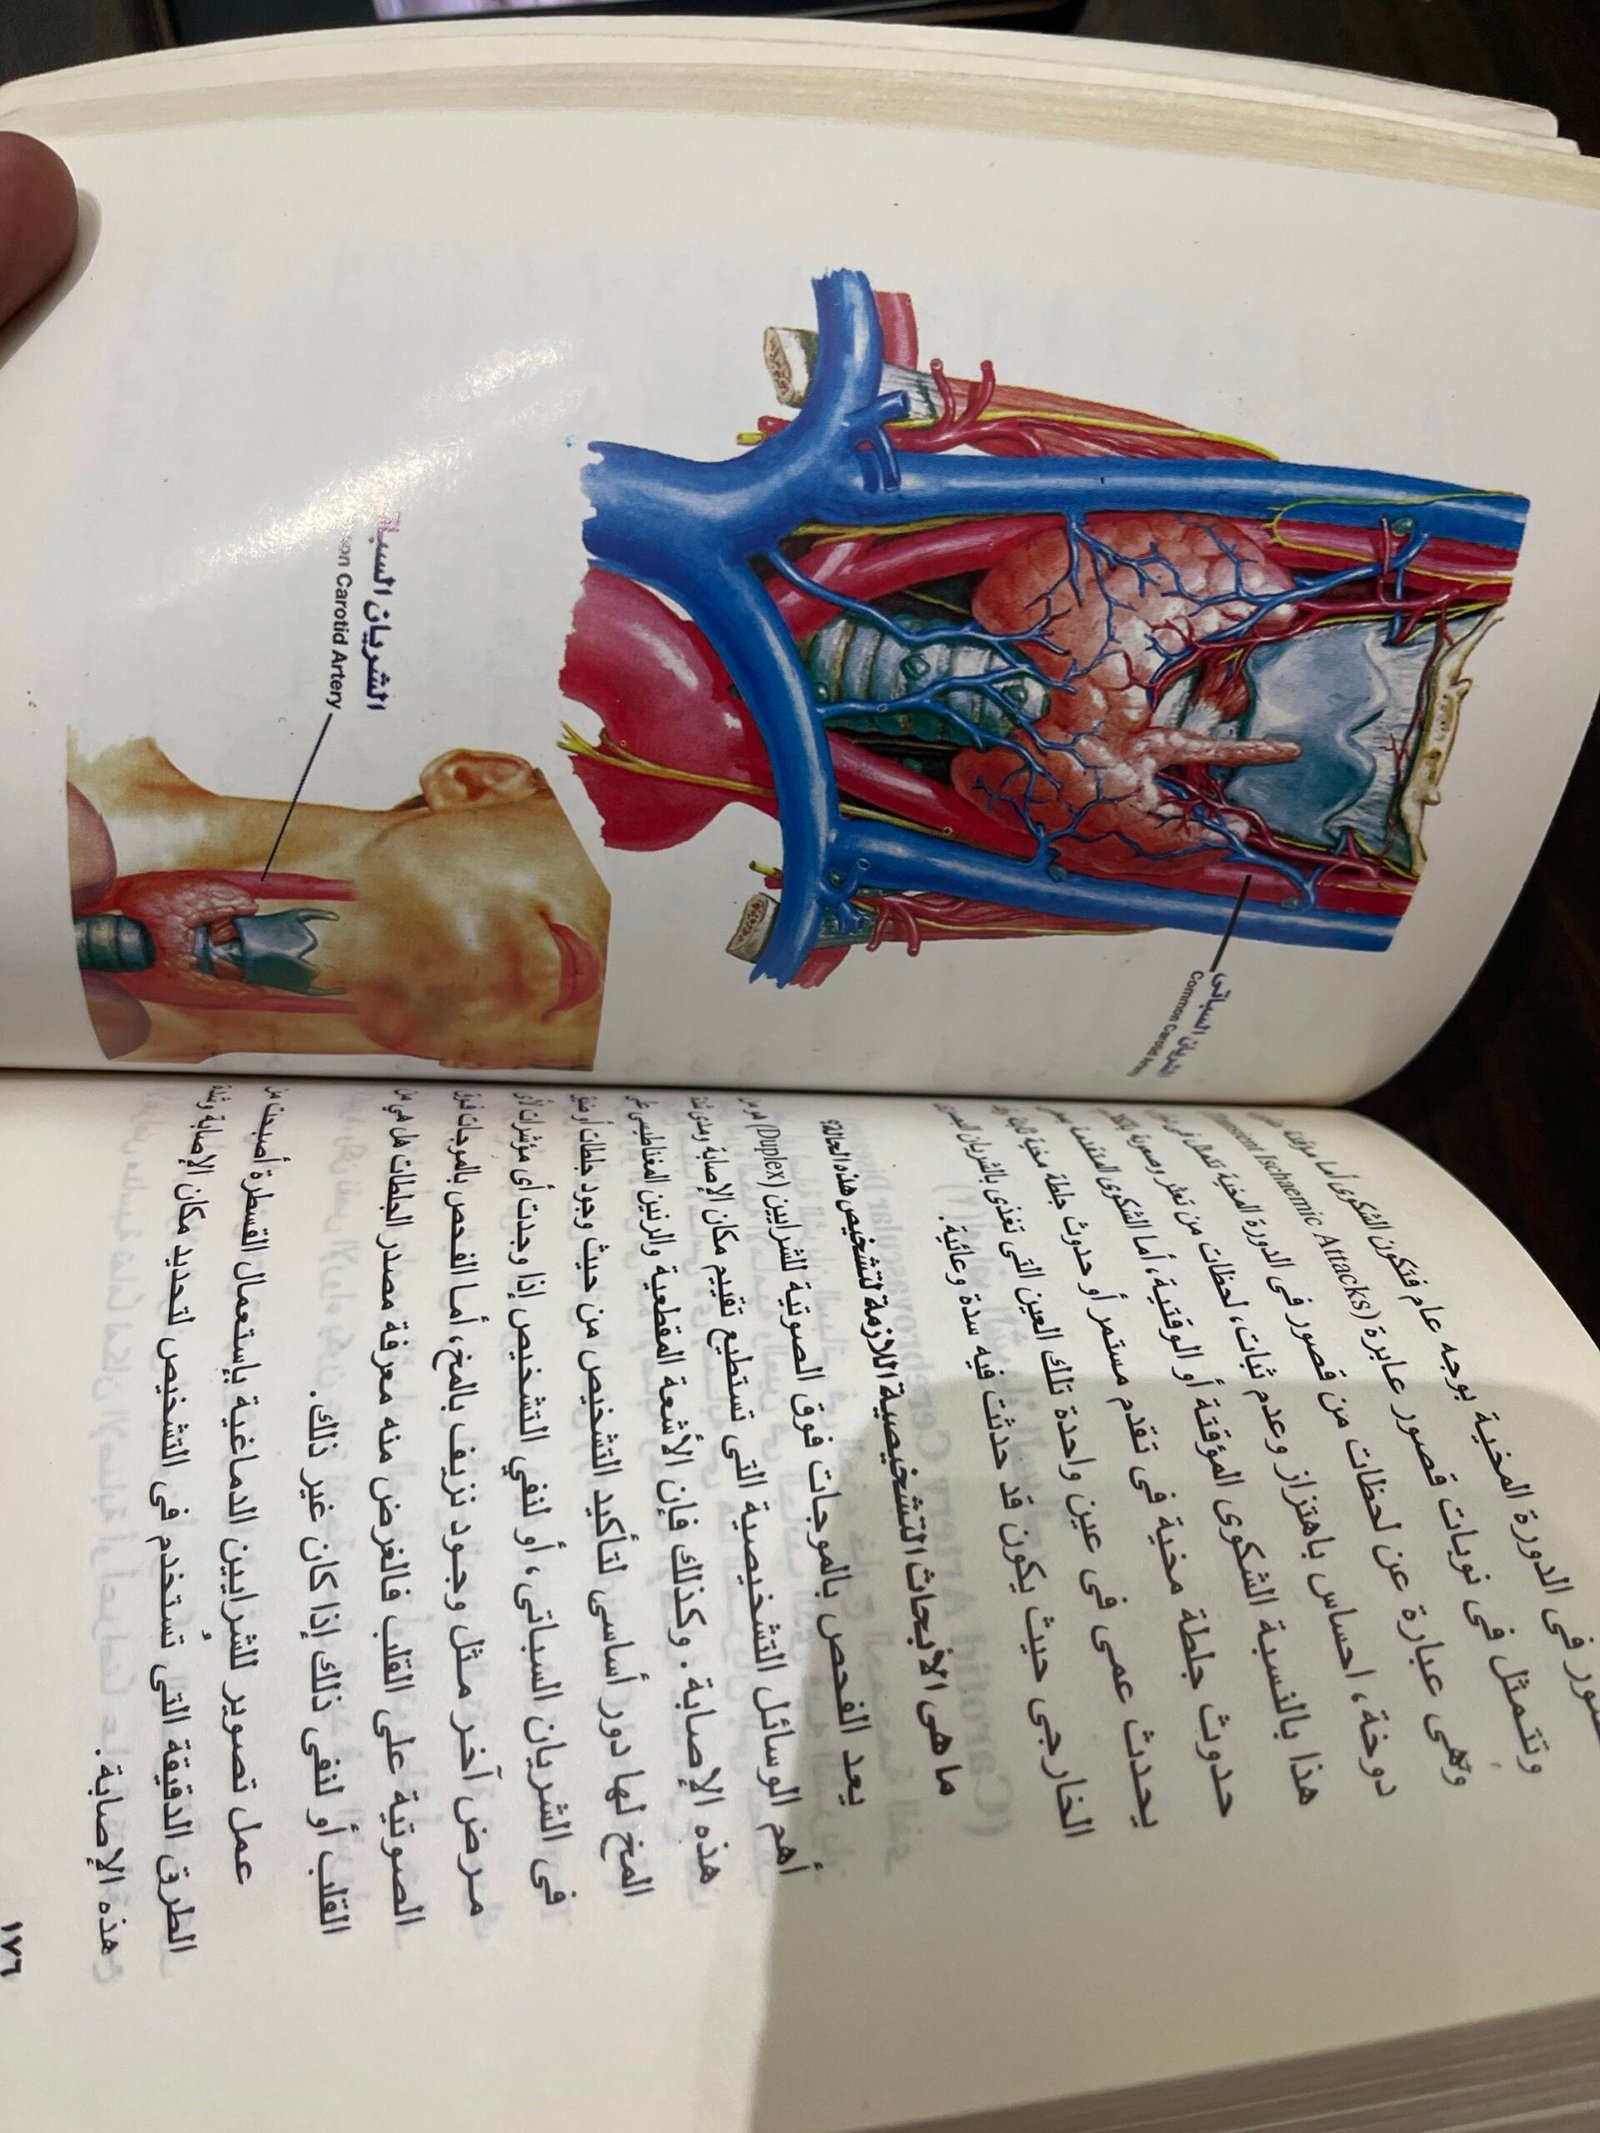 الشريان السباتى
Common Carotid Artery
الشريان السباتى
Carotid Artery
فى الدورة المخية بوجه عام فتكون الشكوى أما مؤقتة
وتتمثل فى نوبات قصور عابرة (Ischaemic Attacks
وهى عبارة عن لحظات من قصور فى الدورة المخية
دوخة، احساس باهتزاز وعدم ثبات، لحظات من تعثر وصعوبة
هذا بالنسبة الشكوى المؤقتة أو الوقتية، أما الشكوى المتقدمة
حدوث جلطة مخية فى تقدم مستمر أو حدوث جلطة مخية
يحدث عمى فى عين واحدة تلك العين التى تغذى بالشريان
الخارجى حيث يكون قد حدثت فيه سدة وعائية.
ما هى الأبحاث التشخيصية اللازمة لتشخيص هذه الحالة؟
يعد الفحص بالموجات فوق الصوتية للشرايين (Duplex) هو من
أهم الوسائل التشخيصية التى تستطيع تقييم مكان الإصابة ومدى شدة
هذه الإصابة. وكذلك فإن الأشعة المقطعية والرنين المغناطيسى على
المخ لها دور أساسى لتأكيد التشخيص من حيث وجود جلطات أو ضيق
فى الشريان السباتى، أو لنفي التشخيص إذا وجدت أى مؤشرات لأى
مرض آخر مثل وجود نزيف بالمخ، أما الفحص بالموجات فوق
الصوتية على القلب فالغرض منه معرفة مصدر الجلطات هل هي من
القلب أو لنفى ذلك إذا كان غير ذلك.
عمل تصوير للشرايين الدماغية بإستعمال القسطرة أصبحت من
الطرق الدقيقة التى تستخدم فى التشخيص لتحديد مكان الإصابة وشدة
هذه الإصابة.
١٧٦